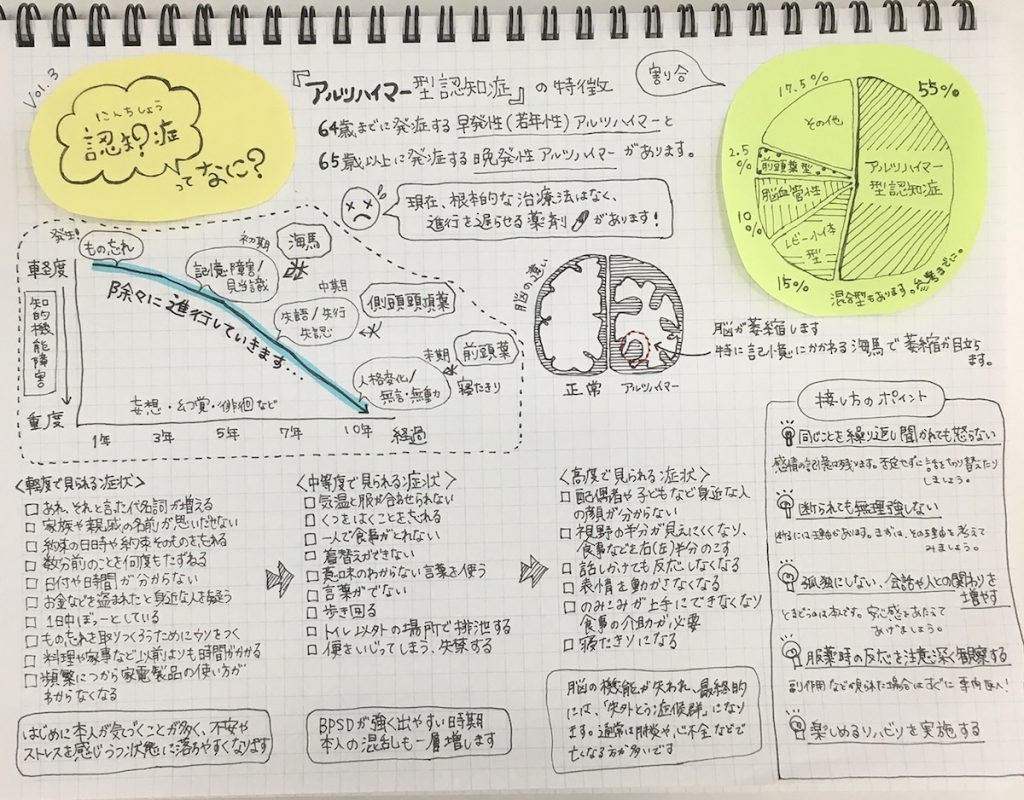 Vol.3
にんちしょう
認知?症
ってなに?
『アルツハイマー型認知症』の特徴
64歳までに発症する早発性(若年性)アルツハイマーと
65歳以上に発症する晩発性アルツハイマーがあります。
現在、根本的な治療法はなく、
進行を遅らせる薬剤があります!
割合
55%
アルツハイマー
型認知症
17.5%
その他
2.5
%
前頭葉型
10
%
脳血管性
15%
レビー小体
型
混合型もあります。参考までに。
発生!
もの忘れ
軽度
知的機能障害
重度
初期
海馬
記憶障害/
見当識
中期
側頭頭頂葉
失語/失行
失認
末期
前頭葉
人格変化/
無言・無動
寝たきり
除々に進行していきます…
妄想・幻覚・徘徊など
1年 3年 5年 7年 10年 経過
脳の違い
正常 アルツハイマー
脳が萎縮します
特に記憶にかかわる海馬で萎縮が目立ち
ます。
<軽度で見られる症状>
□あれ、それと言った代名詞が増える
□家族や親戚の名前が思いだせない
□約束の日時や約束そのものを忘れる
□数分前のことを何度もたずねる
□日付や時間が分からない
□お金などを盗まれたと身近な人を疑う
□1日中ぼぅーとしている
□もの忘れを取りつくろうためにウソをつく
□料理や家事など以前よりも時間がかかる
□頻繁につかう家電製品の使い方が
わからなくなる
はじめに本人が気づくことが多く、不安や
ストレスを感じうつ状態に落ちやすくなります
<中等度で見られる症状>
□気温と服が合わせられない
□くつをはくことを忘れる
□一人で食事がとれない
□着替えができない
□意味のわからない言葉を使う
□言葉がでない
□歩き回る
□トイレ以外の場所で排泄する
□便をいじってしまう、失禁する
BPSDが強く出やすい時期
本人の混乱も一層増します
<高度で見られる症状>
□配偶者や子どもなど身近な人
の顔が分からない
□視野の半分が見えにくくなり、
食事などを右(左)半分のこす
□話しかけても反応しなくなる
□表情を動かさなくなる
□のみこみが上手にできなくなり
食事の介助が必要
□寝たきりになる
脳の機能が失われ、最終的
には、「失外とう症候群」になり
ます。通常は肺炎や心不全などで
亡くなる方が多いです
接し方のポイント
同じことを繰り返し聞かれても怒らない
感情の記憶は残ります。否定せずに話を切り替えたり
しましょう。
断られても無理強しない
断るには理由があります。まずは、その理由を考えて
みましょう。
孤独にしない、会話や人との関わりを
増やす
とまどうのは本人です。安心感をあたえて
あげましょう。
服薬時の反応を注意深く観察する
副作用などが見られた場合はすぐに
楽しめるリハビリを実施する